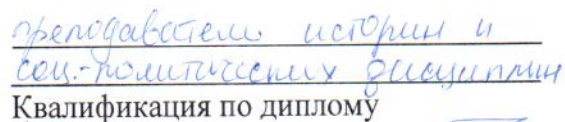 преподаватель истории и
соц.-политических дисциплин
Квалификация по диплому